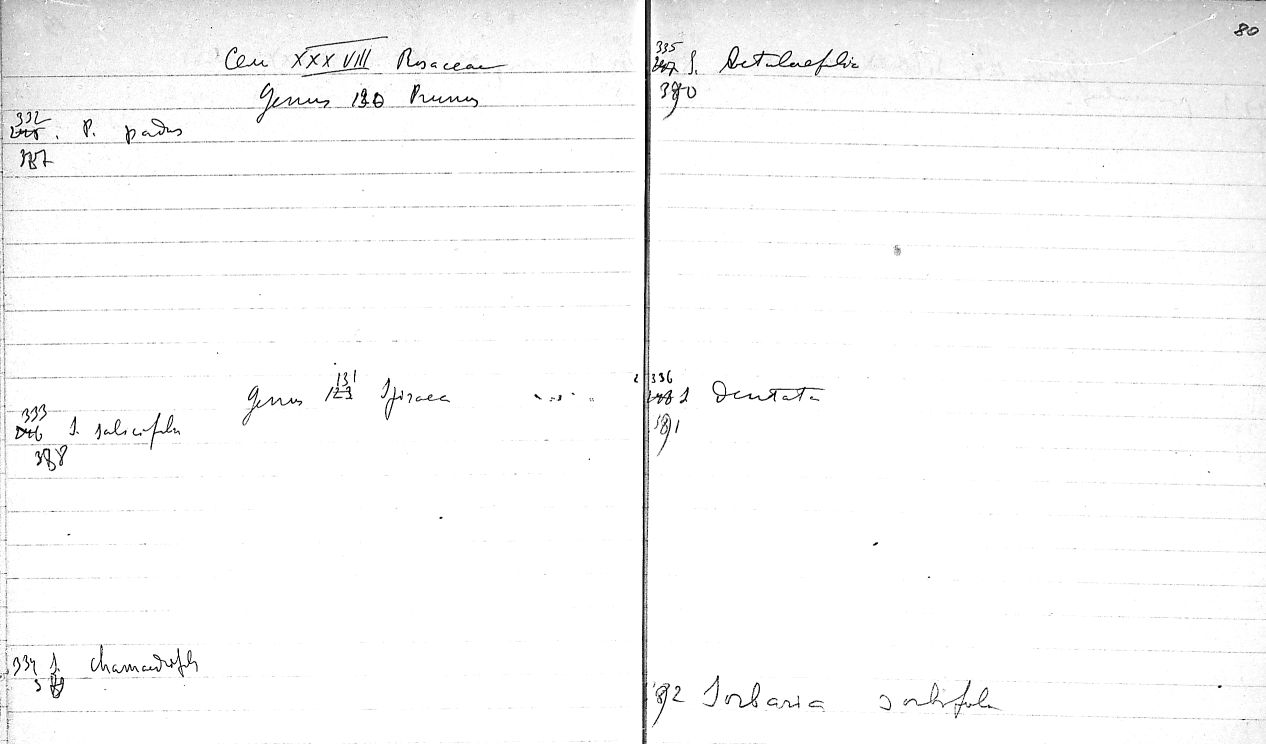 Cem XXXVIII Rosaceae
Genus 130 Prunus
332
245. P. padus
387
Genus 131 123 Spiraea
333
246 S. salicifolia
388
334 S. chamaedrifolia
389
80
335
247 S. betulaefolia
390
336
248 S dentata
391
392 Sorbaria sorbifolia